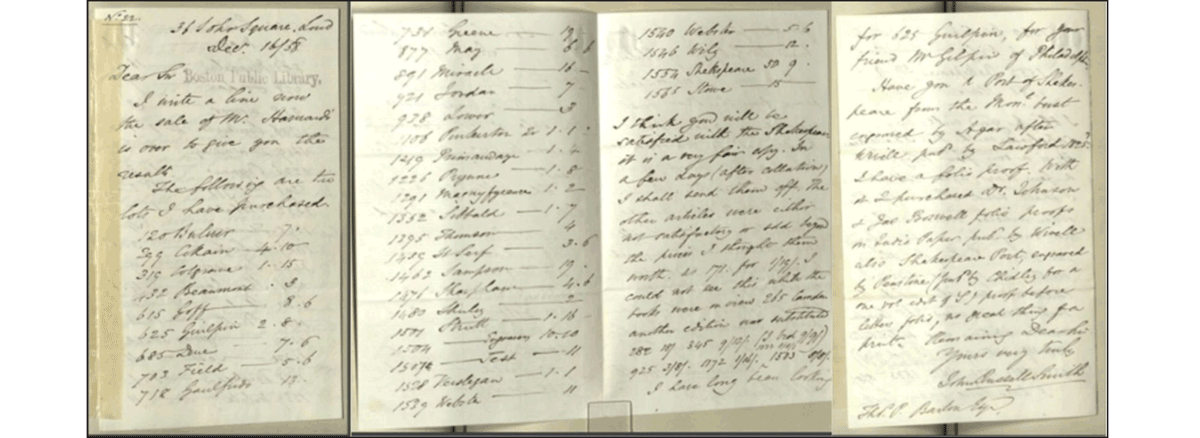 No 22.
36 Soho Square, Lond
Dec. 16/58
Dear Sir Boston Public Library.
I write a line now
the sale of Mr.
is over to give you the
result
The following are the
lots I have purchased
120 Bulwer — 7.
299 Cokain — 4. 10
319 Cotgrave 1. 15
432 Beaumont . 3.
615 Goff — 8. 6
625 Guilpin 2. 8.
685 — 7. 6
703 Field — 5. 6
718 Gaulfrido 13.
731 Greene —
877 May — 6. 6
891 Miracle — 16 —
921 Jordan — 7 —
928 Lower — 3
Pemberton 1. 1.
1219 Primaudaye — 1. 4
1226 Prynne — 1. 8
1291 1. 2
Sibbald — 1. 7
1395 Thomson — 4
1409 St Serf — 3. 6
1462 Sampson — 19.
1471 Sharpham — 4. 6
1480 Shirley — 2
1501 Strutt — 1. 16 —
1504 — 10. 10
— Test — 11
1528 Verstegan — 1. 1
1539 Webbe — 11
1540 Webster — 5. 6
1546 Wily — 12.
1554 Shakespeare 38 9.
1565 Stowe — 15
I think you will be
satisfied with the Shakespeare
it is a very fair copy. In
a few days (after collation)
I shall send them off. The
other articles were either
not satisfactory or sold beyond
the prices I thought them
worth. as 171. for I
could not see this while the
books were in view 265
another edition was substituted
282 345
925 1172 1503
I have long been looking
for 625 Guilpin, for your
friend Mr Gilpin of Philadelphia.
Have you a Port of Shakes-
peare from the Mont bust
engraved by Agar after
pubd by
I have a folio proof. With
it I purchased Dr. Johnson
& Jas Boswell folio proofs
on India Paper pubd by
also Shakespeare Port, engraved
by (pubd by Chidley for a
one vol edit of S) proof before
letters folio, no great thing of a
print. Remaining Dear Sir
Yours very truly
John Russell Smith
Thos. P. Barton Esqr.